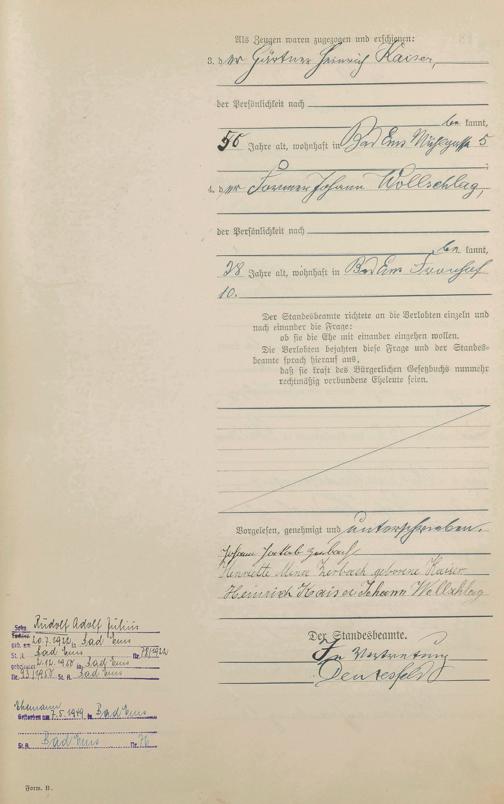 Als Zeugen waren zugezogen und erschienen:
3. der Gärtner Heinrich Kaiser,
der Persönlichkeit nach
be kannt,
50 Jahre alt, wohnhaft in Bad Ems Mühlgasse 5
;
4. der Former Johann Wollschlag,
der Persönlichkeit nach
be kannt,
28 Jahre alt, wohnhaft in Bad Ems Fronhof
10.
Der Standesbeamte richtete an die Verlobten einzeln und
nach einander die Frage:
ob sie die Ehe mit einander eingehen wollen.
Die Verlobten bejahten diese Frage und der Standes-
beamte sprach hierauf aus,
daß sie kraft des Bürgerlichen Gesetzbuchs nunmehr
rechtmäßig verbundene Eheleute seien.
Vorgelesen, genehmigt und unterschrieben.
Johann Jakob Zerbach
Henriette Minna Zerbach geborene Kaiser
Heinrich Kaiser Johann Wollschlag
Der Standesbeamte.
In Vertretung
Sohn Rudolf Adolf Julius
geb. am 20.7.1922 in Bad Ems
St. A. Bad Ems Nr. 78/1922
2.12.1950 in Bad Ems
St. A. Bad Ems
Ehemann
Gestorben am 7.5.1949 in Bad Ems
St. A. Bad Ems Nr. 76
Form. B.